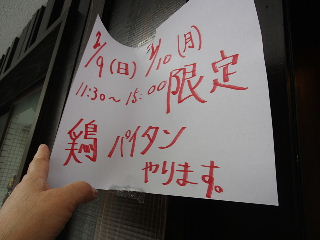 2/9(日) 2/10(月)
11:30～15:00 限定
鶏 パイタン
やります。